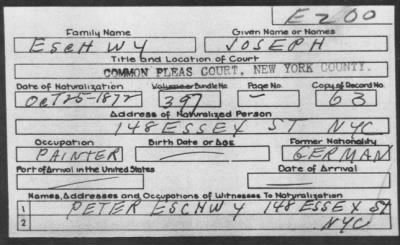 E200
Family Name Given Name or Names
ESCHWY JOSEPH
Title and Location of Court
COMMON PLEAS COURT, NEW YORK COUNTY.
Date of Naturalization Volume or Bundle No. Page No. Copy of Record No.
OCT 25-1872 397 — 63
Address of Naturalized Person
148 ESSEX ST NYC
Occupation Birth Date or Age Former Nationality
PAINTER GERMAN
Port of Arrival in the United States Date of Arrival
Names, Addresses and Occupations of Witnesses To Naturalization
1 PETER ESCHWY 148 ESSEX ST
2 NYC